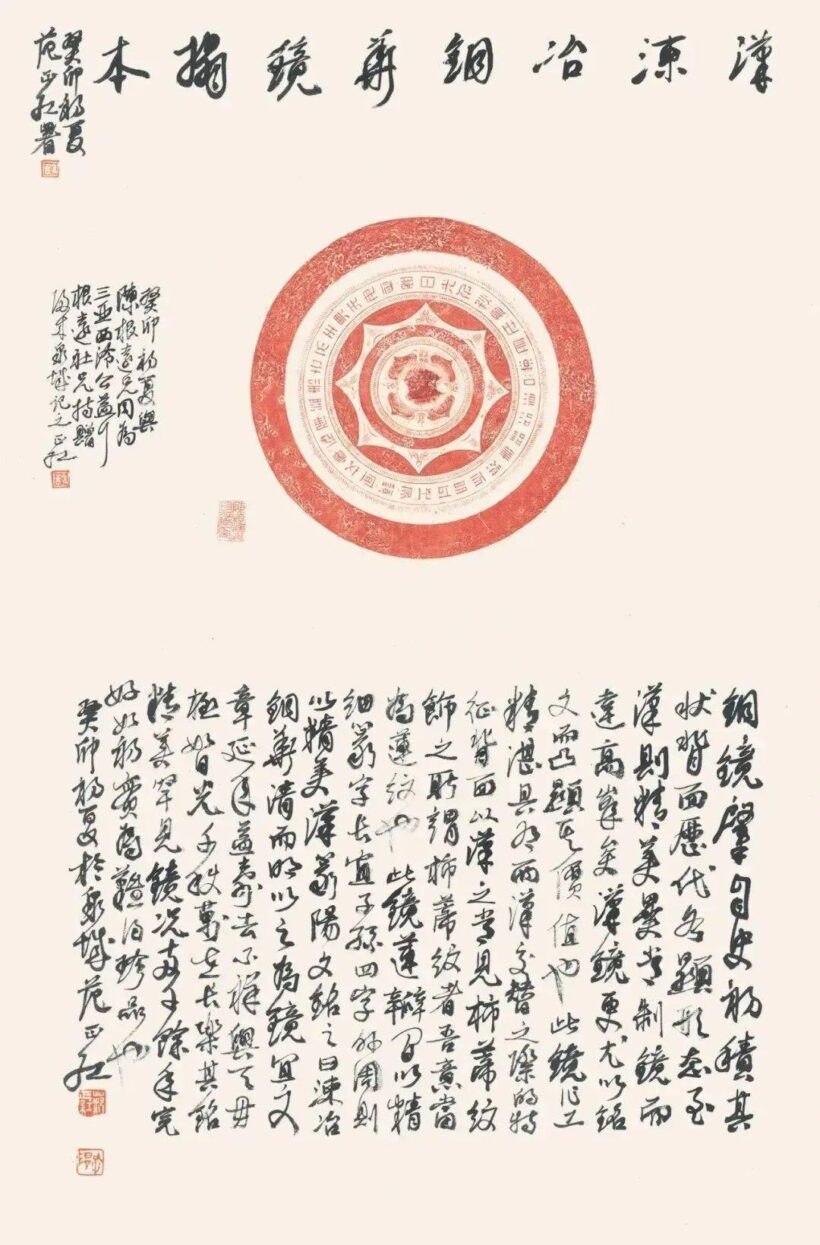 漢湅冶銅華鏡搨本
癸卯初夏
范正紅署
癸卯初夏與
陳根遠兄同為
三亞西泠公益行
根遠社兄持贈
歸來泉城記之正紅
銅鏡肇自史初積其
狀背面歷代各顯形態至
漢則精美異常制鏡而
達高峯矣漢鏡更尤以銘
文而凸顯其價值也此鏡作工
精湛具有兩漢交替之際的特
征背面以漢之常見柿蒂紋
飾之所謂柿蒂紋者吾意當
為蓮紋也此鏡蓮瓣間以精
細篆字長宜子孫四字外周則
以精美漢篆陽文銘之曰湅冶
銅華清而明以之為鏡宜文
章延年益壽去不祥與天毋
極如日光千秋萬歲長樂其銘
精美罕見鏡況兩千餘年完
好如初實為難得珍品也
癸卯初夏於泉城范正紅